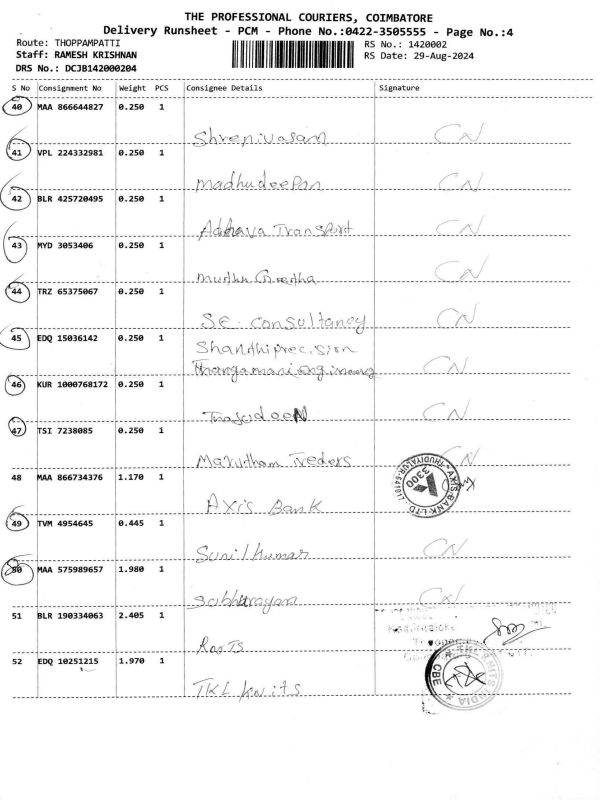 THE PROFESSIONAL COURIERS, COIMBATORE
Delivery Runsheet - PCM - Phone No.:0422-3505555 - Page No.:4
Route: THOPPAMPATTI
RS No.: 1420002
Staff: RAMESH KRISHNAN
RS Date: 29-Aug-2024
DRS No.: DCJB142000204
S No Consignment No Weight PCS Consignee Details Signature
40 MAA 866644827 0.250 1
Shrenivasam CN
41 VPL 224332981 0.250 1
madhudeepan CN
42 BLR 425720495 0.250 1
Transport CN
43 MYD 3053406 0.250 1
muthu Geetha CN
44 TRZ 65375067 0.250 1
SE consultancy CN
45 EDQ 15036142 0.250 1
Shanthi precision
Thangamani engineering CN
46 KUR 1000768172 0.250 1
Thajudeen CN
47 TSI 7238085 0.250 1
Marutham Treders CN
48 MAA 866734376 1.170 1
Axis Bank
AXIS BANK LTD. THUDIYALUR-64101
3300
49 TVM 4954645 0.445 1
Sunil kumar CN
50 MAA 575989657 1.980 1
CN
51 BLR 190334063 2.405 1
52 EDQ 10251215 1.970 1
TKL knits
TKL KNITS INDIA
CBE